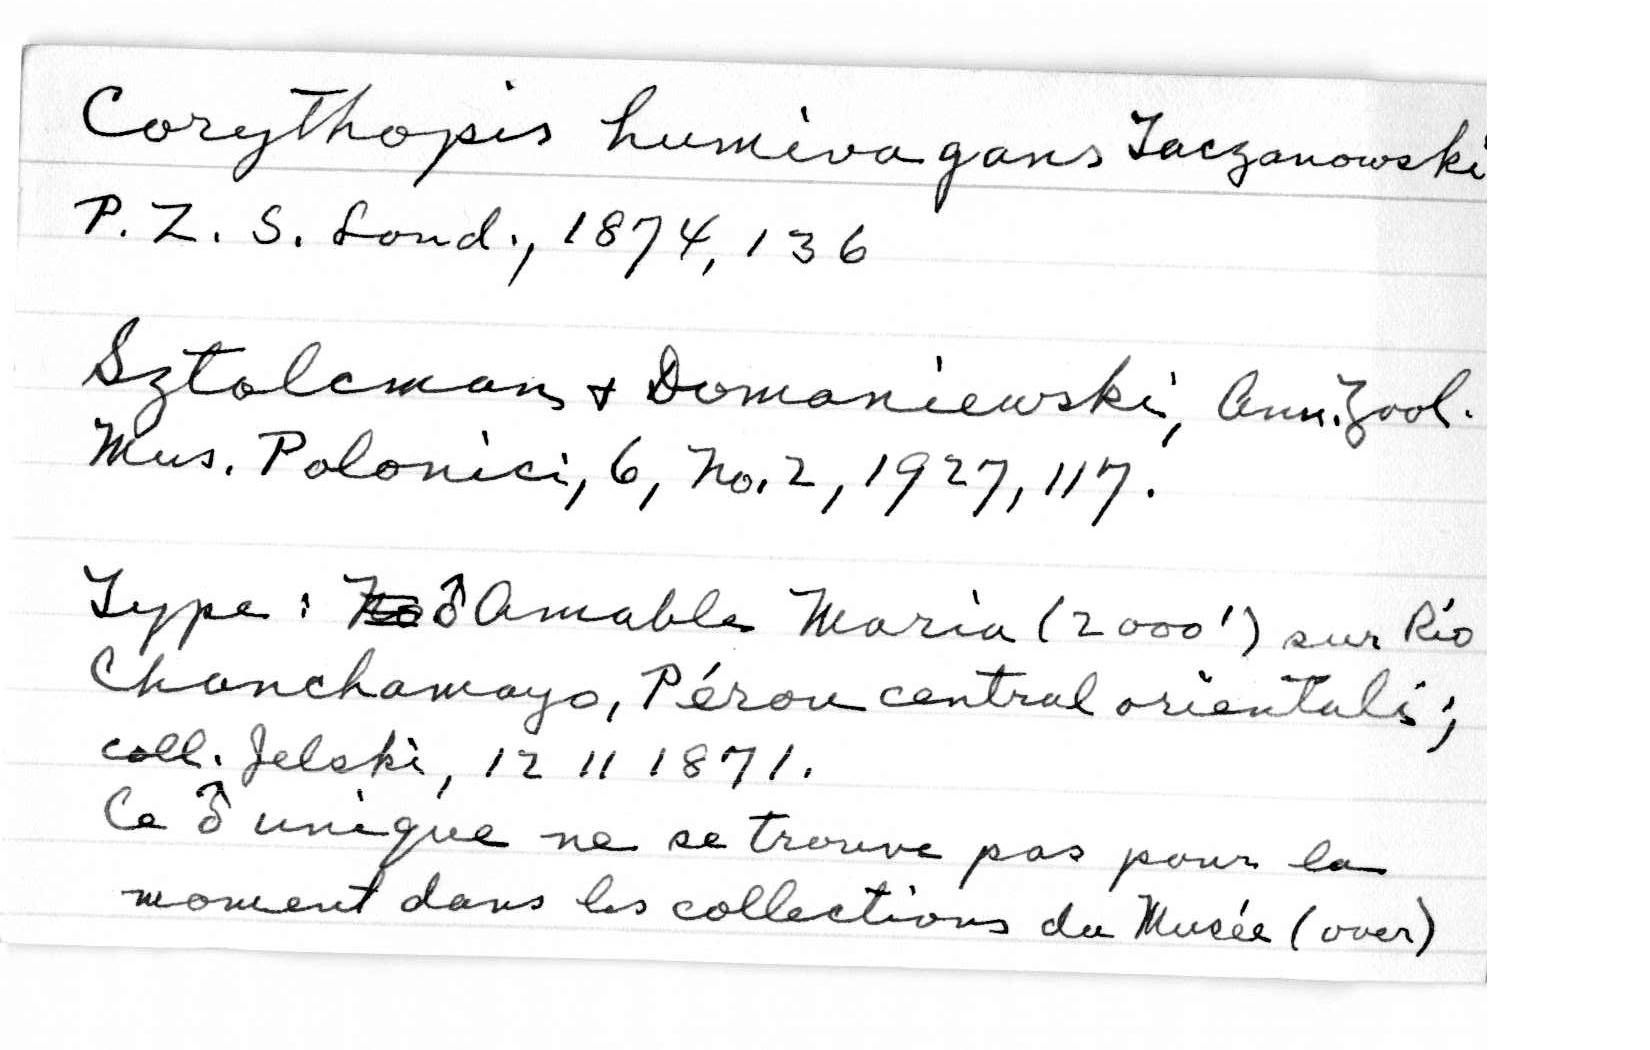 Corythopis humivagans Taczanowski
P. Z. S. Lond., 1874, 136
Sztolcman & Domaniewski, Ann. Zool.
Mus. Polonici, 6, No. 2, 1927, 117.
Type : ♂ Amable Maria (2000') sur Rio
Chanchamayo, Pérou central orientali;
coll. Jelski, 12 11 1871.
Ce ♂ unique ne se trouve pas pour la
moment dans les collections du Musée (over)